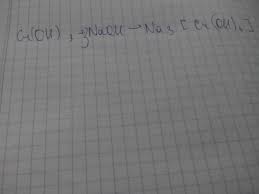 Cr(OH)₃ + 3NaOH → Na₃[Cr(OH)₆]